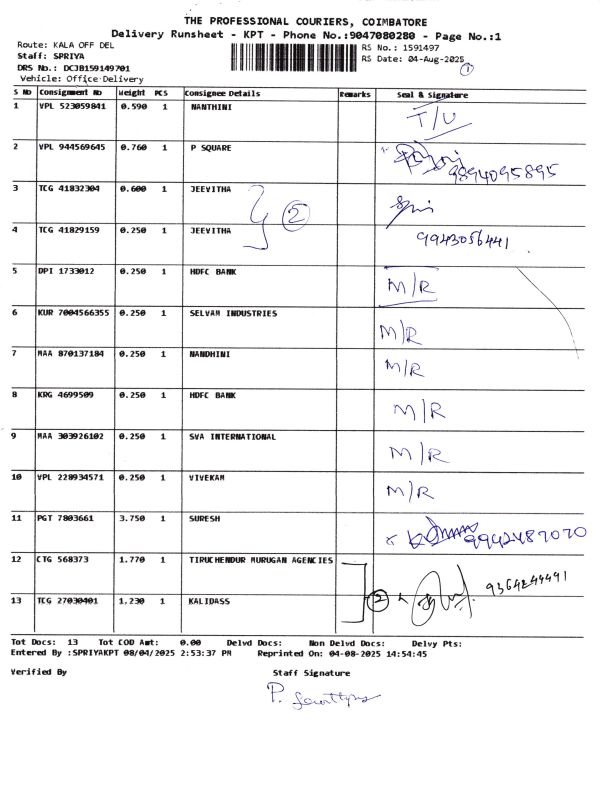 THE PROFESSIONAL COURIERS, COIMBATORE
Delivery Runsheet - KPT - Phone No.:9047080280 - Page No.:1
Route: KALA OFF DEL
RS No.: 1591497
Staff: SPRIYA
RS Date: 04-Aug-2025
DRS No.: DCJB159149701
1
Vehicle: Office Delivery
S No Consignment No Weight PCS Consignee Details Remarks Seal & Signature
1 VPL 523059841 0.590 1 NANTHINI T/U
2 VPL 944569645 0.760 1 P SQUARE 9894095895
3 TCG 41832304 0.600 1 JEEVITHA
2
4 TCG 41829159 0.250 1 JEEVITHA 9943056441
5 DPI 1733012 0.250 1 HDFC BANK M/R
6 KUR 7004566355 0.250 1 SELVAM INDUSTRIES M/R
7 MAA 870137184 0.250 1 NANDHINI M/R
8 KRG 4699509 0.250 1 HDFC BANK M/R
9 MAA 303926102 0.250 1 SVA INTERNATIONAL M/R
10 VPL 228934571 0.250 1 VIVEKAM M/R
11 PGT 7803661 3.750 1 SURESH 9942487070
12 CTG 568373 1.770 1 TIRUCHENDUR MURUGAN AGENCIES
2
13 TCG 27030401 1,230 1 KALIDASS
Tot Docs: 13 Tot COD Amt: 0.00 Delvd Docs: Non Delvd Docs: Delvy Pts:
Entered By :SPRIYAKPT 08/04/2025 2:53:37 PM Reprinted On: 04-08-2025 14:54:45
Verified By Staff Signature
P.